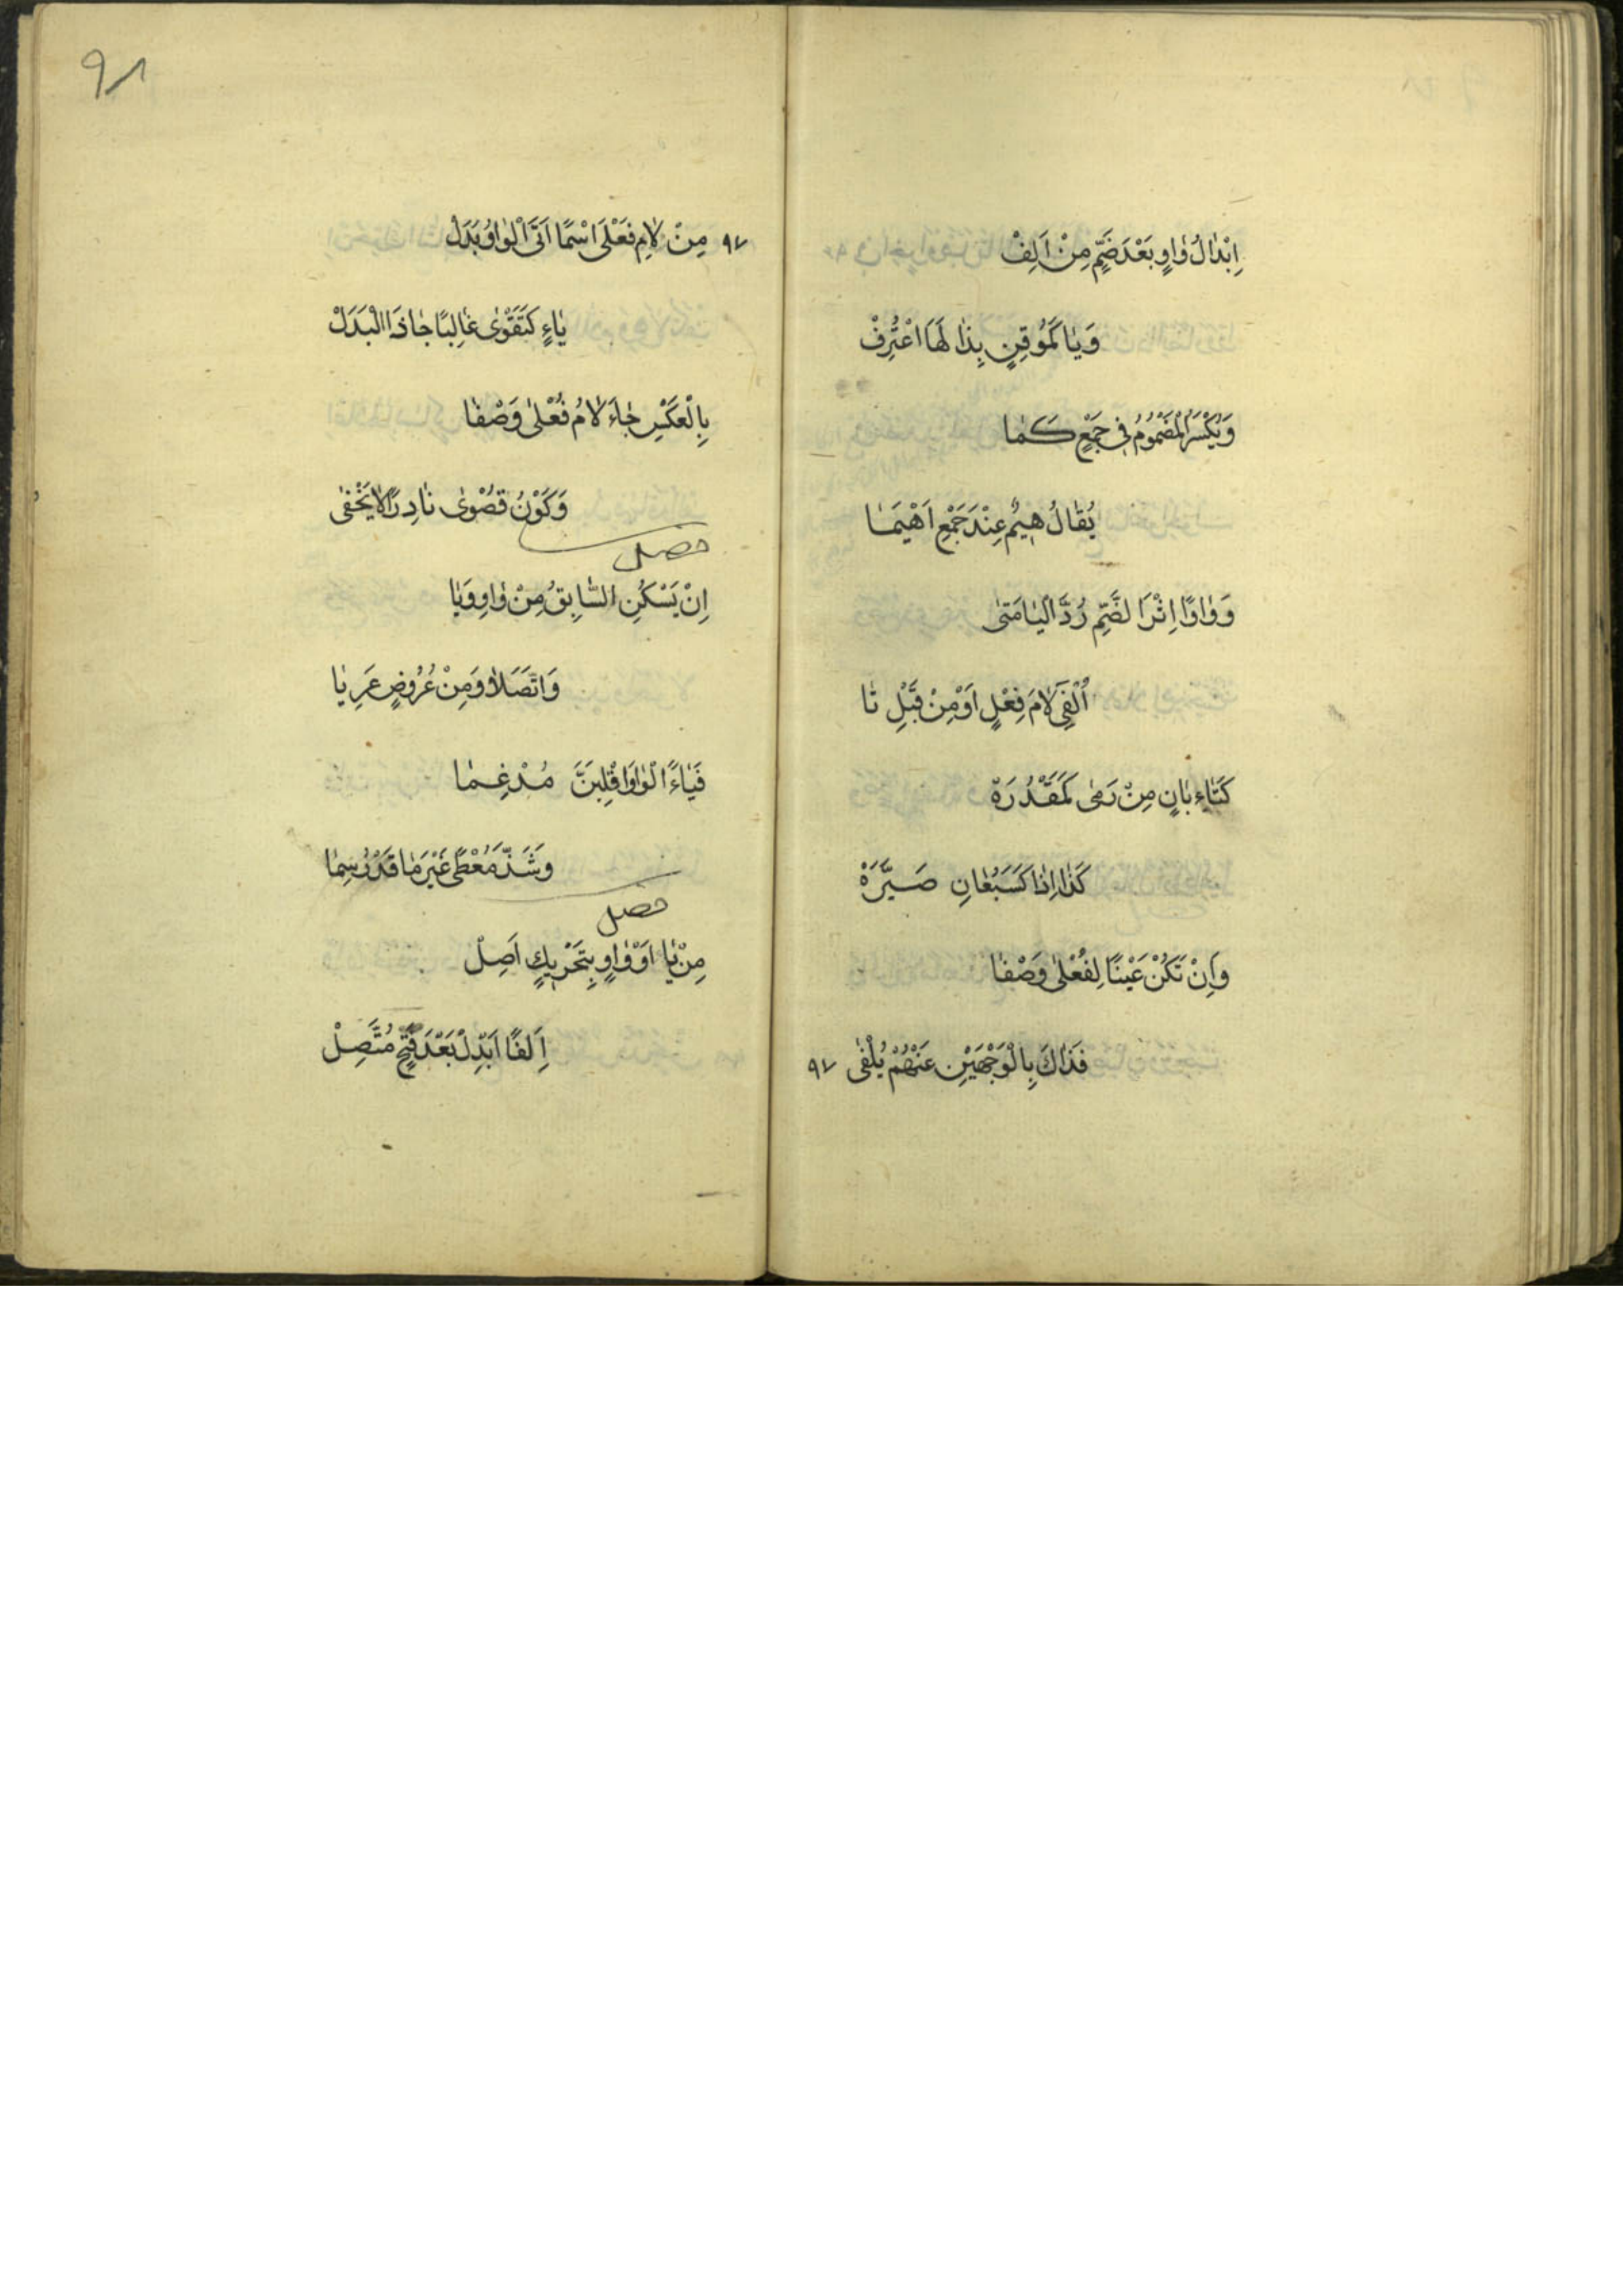 اِبْدَالُ وَاوٍ بَعْدَ ضَمٍّ مِنْ اَلِفْ
وَيَا كَمُوقِنٍ بِذَا لَهَا اعْتُرِفْ
وَيُكْسَرُ الْمَضْمُومُ فِي جَمْعٍ كَمَا
يُقَالُ هِيمٌ عِنْدَ جَمْعِ اَهْيَمَا
وَوَاوًا اِثْرَ الضَّمِّ رُدَّ الْيَا مَتَى
اُلْفِيَ لَامَ فِعْلٍ اَوْ مِنْ قَبْلِ تَا
كَتَاءِ بَانٍ مِنْ رَمَى كَمَقْدُرَهْ
كَذَا اِذَا كَسَبُعَانِ صَيَّرَهْ
وَاِنْ تَكُنْ عَيْنًا لِفُعْلَى وَصْفَا
فَذَاكَ بِالْوَجْهَيْنِ عَنْهُمْ يُلْفَى ٩٧
٩٨
٩٧ مِنْ لَامِ فَعْلَى اسْمًا اَتَى الْوَاوُ بَدَلْ
يَاءٍ كَتَقْوَى غَالِبًا جَا ذَا الْبَدَلْ
بِالْعَكْسِ جَاءَ لَامُ فُعْلَى وَصْفَا
وَكَوْنُ قُصْوَى نَادِرًا لَا يَخْفَى
فصل
اِنْ يَسْكُنِ السَّابِقُ مِنْ وَاوٍ وَيَا
وَاتَّصَلَا وَمِنْ عُرُوضٍ عَرِيَا
فَيَاءً الْوَاوَ اقْلِبَنَّ مُدْغِمَا
وَشَذَّ مُعْطًى غَيْرَ مَا قَدْ رُسِمَا
فصل
مِنْ يَا اَوْ وَاوٍ بِتَحْرِيكٍ اُصِلْ
اَلِفًا ابْدِلْ بَعْدَ فَتْحٍ مُتَّصِلْ